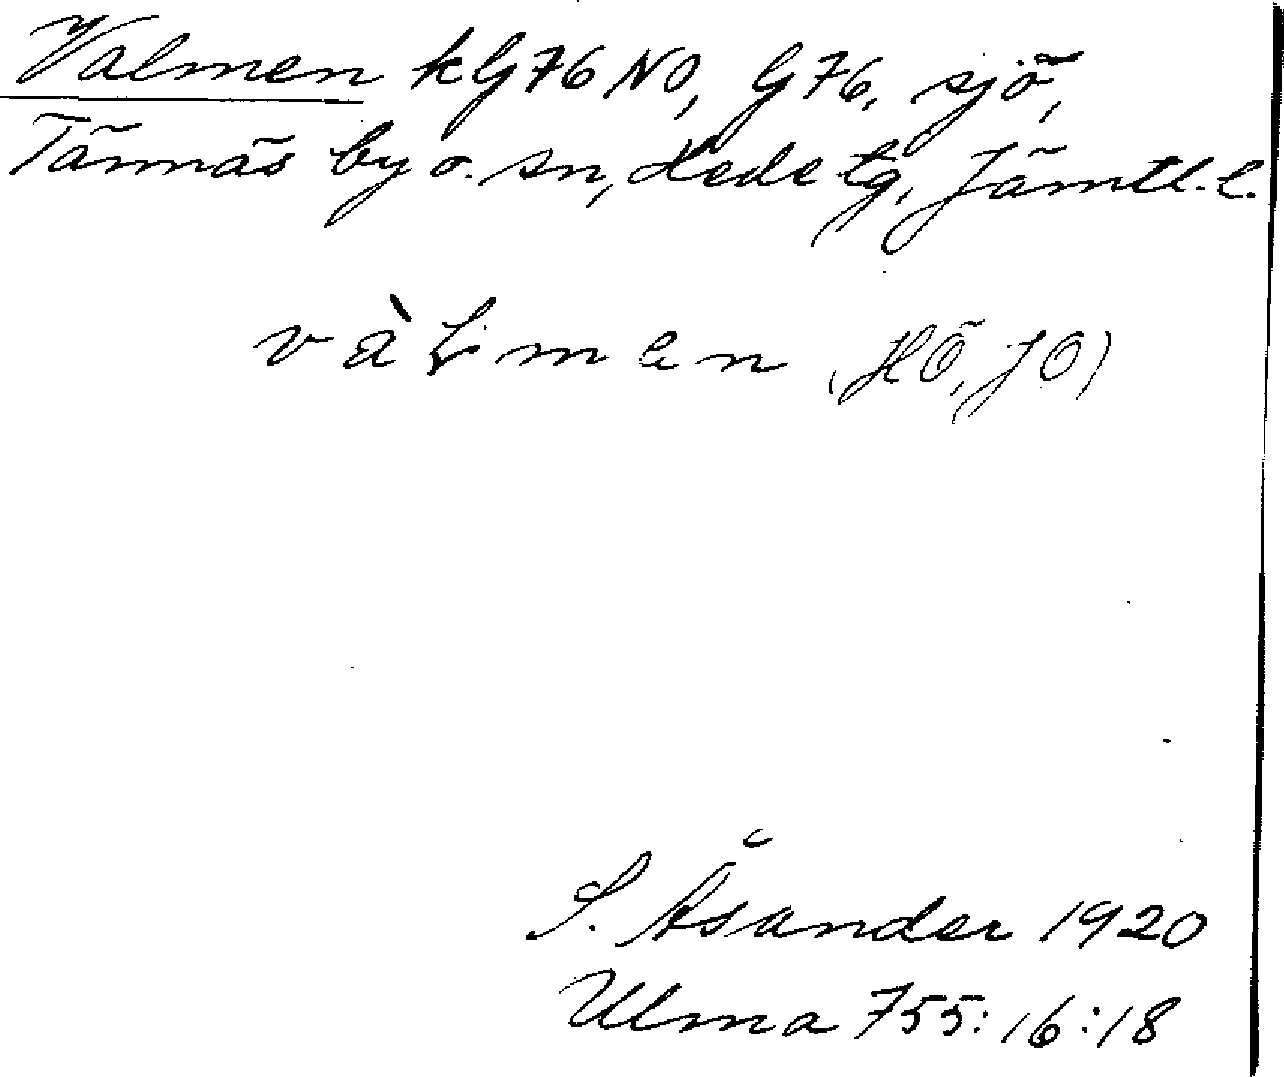 Valmen kG76NO, G76, sjö,
Tännäs by o. sn, Hede tg, Jämtl. l.
vàḷmen (HÖ, JO)
S. Åsander 1920
Ulma 755:16:18